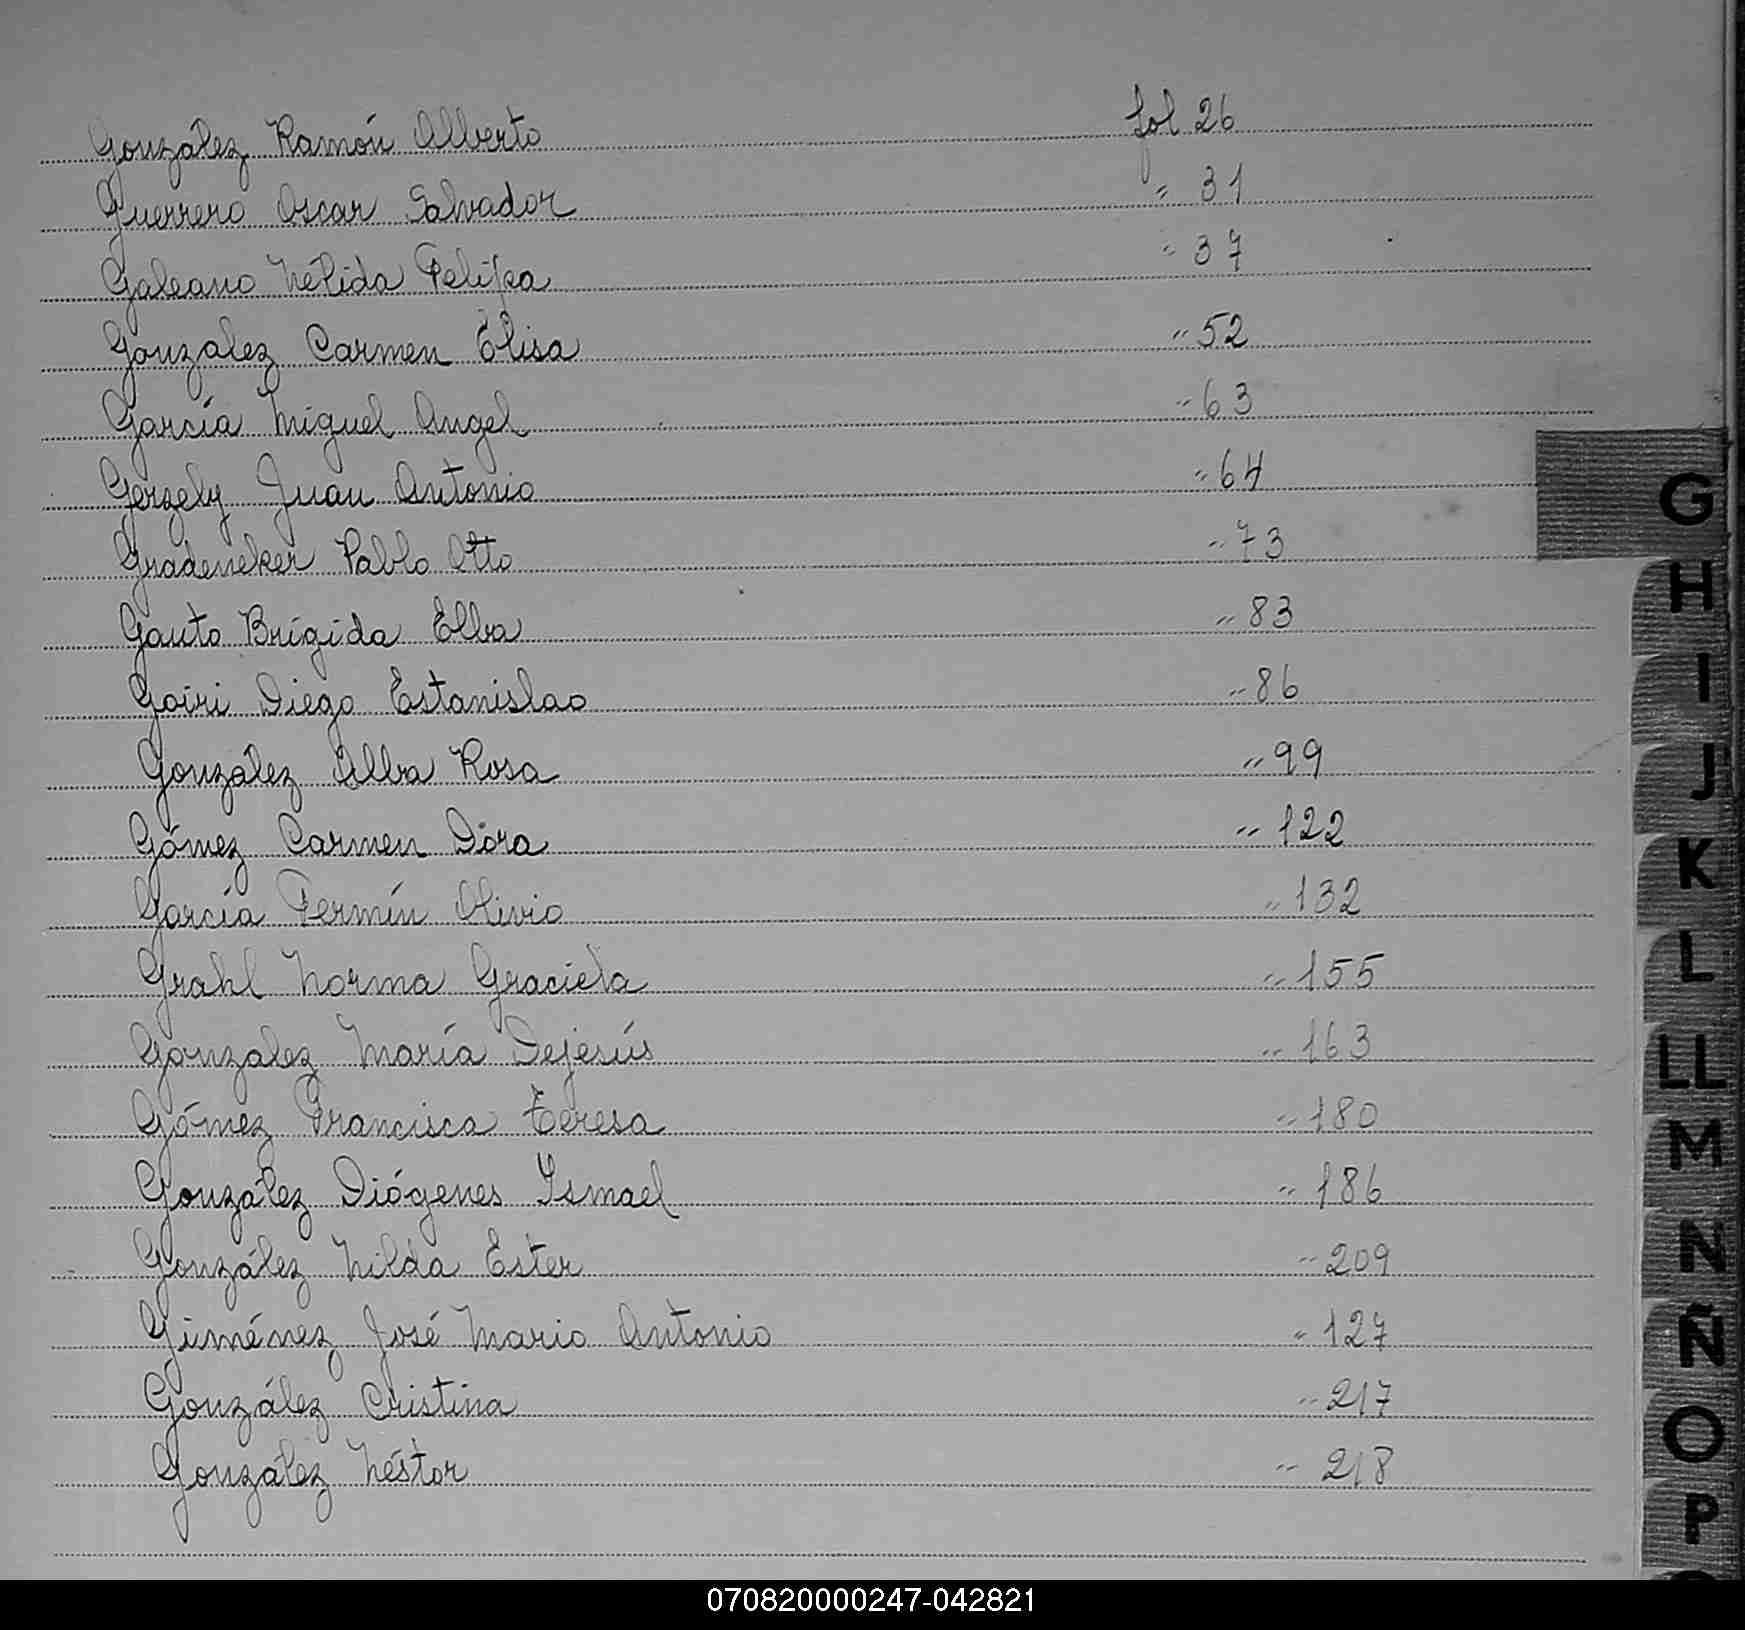 González Ramón Alberto fol 26
Guerrero Oscar Salvador " 31
Galeano Nélida Felipa " 37
Gonzalez Carmen Elisa " 52
García Miguel Angel " 63
Gerzely Juan Antonio " 64
Gradeneker Pablo Otto " 73
Gauto Brígida Elba " 83
Goiri Diego Estanislao " 86
González Alba Rosa " 99
Gómez Carmen Dora " 122
García Fermín Olivio " 132
Grahl Norma Graciela " 155
Gonzalez María Dejesús " 163
Gómez Francisca Teresa " 180
González Diógenes Ismael " 186
González Nilda Ester " 209
Giménez José Mario Antonio " 127
González Cristina " 217
González Néstor " 218
G
H
I
J
K
L
LL
M
N
Ñ
O
P
070820000247-042821